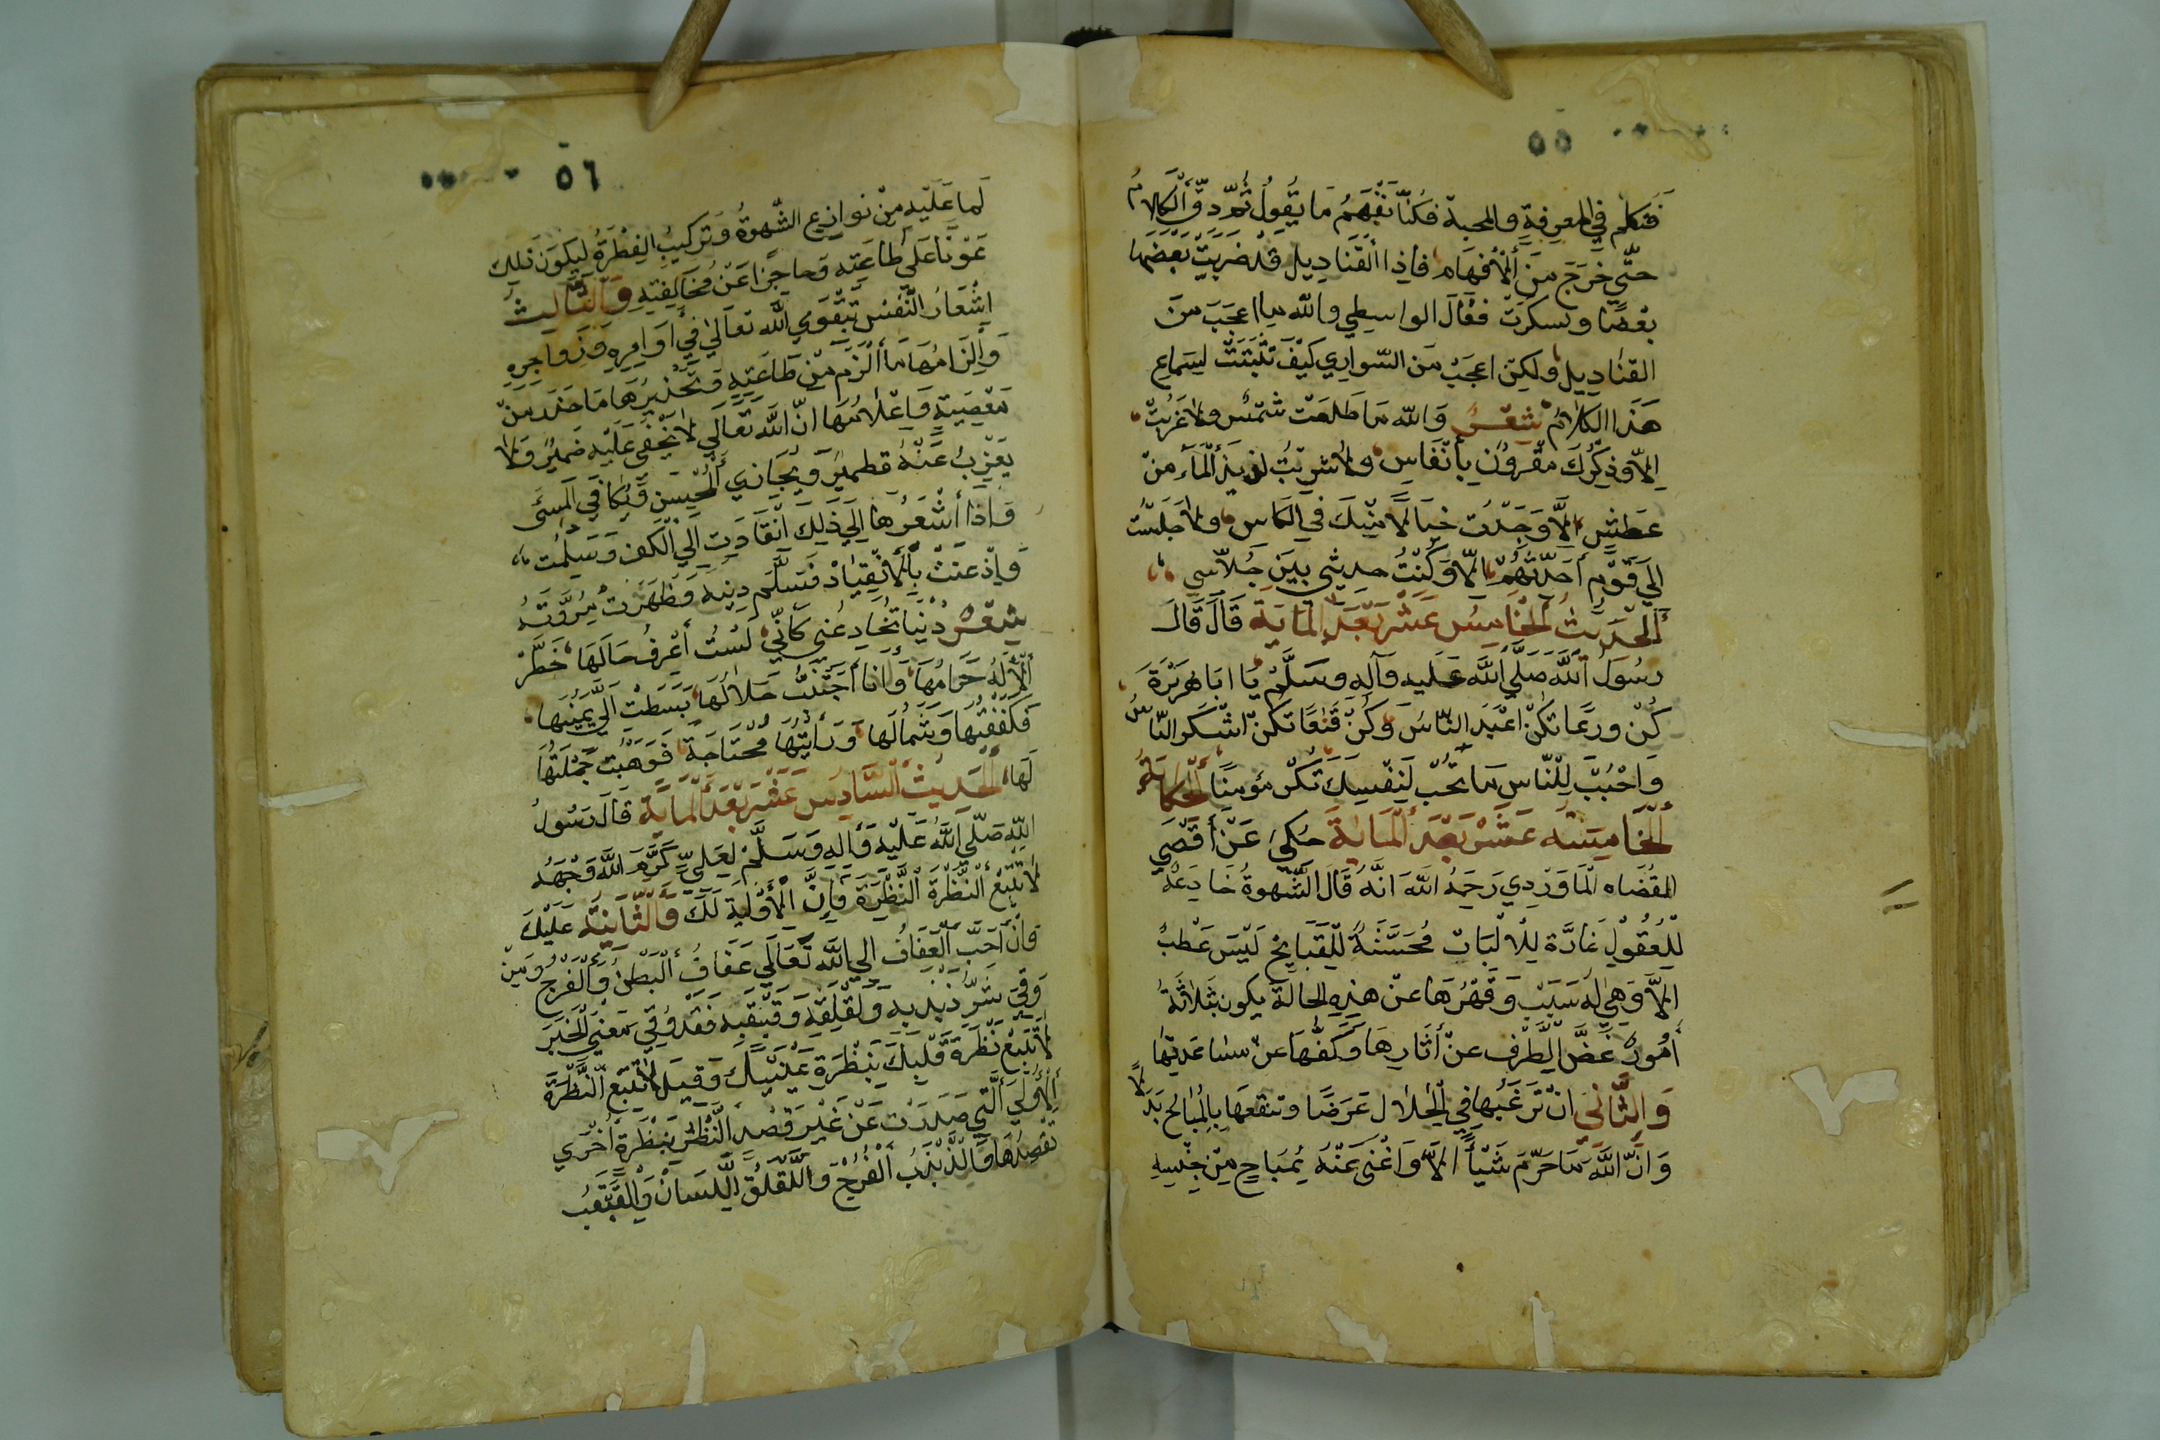 ٥٥
فتكلم في المعرفةِ والمحبة فكنّا نَفْهَمُ مَا يَقُولُ ثُمَّ دقَّ أَلْكَلامُ
حتّي خَرَجَ مَنَ أَلْأفهَام فاِذا أَلقَنَادِيل قد ضَرَبَتْ بَعْضَهَا
بعْضًا وتسكرَتْ فقَالَ الواسطي والله ما اعجَبَ مَنَ
القنَاديلِ ولكِنّ اعجَبُ مَن السّواري كَيْفَ تَثْبَتَتْ لِسَماعِ
هَذَا الكلامُ شِعْرٌ وَالله مَا طَلعَتْ شمْسٌ ولا غرُبَتْ
اِلاّ وَذِكْرُكَ مقْرُونٌ بأَنْفَاسِ ولا شرِبْتُ لذِيذَ أَلْمَآءِ مِنْ
عَطشٍ اِلاَّ وَجَدْتُ خيَالاً مِنْكَ في الكاسِ ولا جَلَسْتُ
اِلَي قَوْمٍ أُحَدِّثُهُمُ اِلاّ وَكُنْتُ حديثي بَيَنَ جُلاّسِي
أَلحَدِيثُ أَلْخَامِسُ عَشَرَ بَعْدَ الْمَايَةِ قَالَ قَالَ
رسُولُ أَللَّهِ صَلَّي أَللَّهُ عَليهِ وَآلِهِ وسَلَّمَ يَا ابَا هُرَيْرَةَ
كُنْ ورعًا تكُنْ اعْبَدَ النّاسَ وَكُنْ قَنِعًا تَكُنْ اشْكَرَ النّاس
وَاحْبُبْ لِلنّاسِ مَا تُحُبْ لِنَفْسِكَ تَكُنْ مُؤمِنًا أَلْحكَايَةُ
أَلْخَامِسَه عَشَرَ بَعْدَ أَلْمَايَةِ حُكيَ عَنْ أَقْضَي
القُضَاه أَلْمَاوَرْدِي رَحِمَهُ الله انَّهُ قَالَ أَلشَّهوةُ خَادِعَةٌ
لِلْعُقُولِ غَادَّة لِلألْبَابِ مُحَسَّنَةٌ لِلْقَبَايِحِ لَيْسَ عَطَبٌ
اِلاَّ وَهِيَ لهُ سَبَبٌ وَقَهْرُهَا عنْ هذِهِ الحَالةِ يكون بثَلاثَةُ
أُمُورٍ غَضَّ الَطَّرْفِ عنْ أَثَارِهَا وَكَفُّهَا عنْ مساعَدتهَا
وَالثَّانيَ انْ تَرَغَبُهَا فِي اَلْحَلالِ عَرَضًا وتنفعَهَا بِالمُبَالح بَدَلاً
وَانَّ اَللَّهَ مَا حَرّمَ شَيْأً اِلاَّ وَاغْنَي عَنْهُ بُمبَاحٍ مِنْ جِنْسِهِ
٥٦
لَما عَلَيْهِ مِنْ نوازِعِ الشّهوةُ وَتركيبُ الفِطْرَةُ ليَكونَ ذَلِكَ
عَوْنًا عَلَي طاعَتِهِ وَحاجزًا عَنْ مُخَالِفتِهِ وَالثَّالِثُ
اِشْعَارُ النَّفْسَ بَتَقْوَي اللّهِ تعَالَي فيَ أوامِرِهِ وَزَواجِرِهِ
وَالِزَامُهَا مَا أَلْزَمَ مِنْ طَاعَتِهِ وَتَحْذِيرُهَا مَا حَذَرَ مِنْ
مَعْصِيَتِهِ وَاِعْلامُهَا انّ اللَّهَ تَعَالَي لا يَخْفَى عَلَيْهِ ضَمِيرٌ وَلا
يَعْزِبُ عَنْهُ قطميرٌ وَيُجَازي أَلْمُحْسِنَ وَيُكَافي المسئَ
وَاِذَا أَشْعَرُهَا اِلَي ذلِكَ انْقَادَتِ اِلي الْكَفِ وَسَلِمَتْ
وَاِذْعَنَتْ بأَلاِنْقِيَادِ فسَلَّمَ دِينِهِ وَظَهَرَتْ مُرُوَّتَهُ
شِعْرٌ دُنْيَا تُخَادِعُنِي كَأَنّيِ لَسْتُ أَعْرِفُ حَالَهَا خَطَّرَ
أَلْإلَهُ حَرَامُهَا وَأنَا اَجْتَنَبْتُ حَلالُهَا بَسَطَتْ اِلَيَّ يَمِينُهَا
فَكَفَفْتُهَا وَشَمَالَهَا وَرَأَيْتُهَا مُحْتَاجَةً فَوَهَبْتُ جُمْلَتُهَا
لَها أَلْحَدِيثُ اَلسَّادِسُ عَشَرَ بَعْدَ أَلْمَايَةِ قَالَ رَسُولُ
اللّهِ صَلّي اللّهُ عَلَيْهِ وَآلِهِ وَسَلَّمَ لِعَلِيٍّ كَرَّمَ اللَّهُ وَجْهَهُ
لا تُتْبَعْ أَلْنَّظْرَةَ اَلنَّظْرَةَ فَاِنَّ الْأَوَّلِيَة لَكَ وَاَلْثَّانِيَّه عَلَيْكَ
وَاِنَّ أَحَبَّ اَلْعَفَافُ اِلي اللَّهِ تَعَالَي عَفَافُ أَلْبَطْنُ وَالْفَرْجُ وَمَنْ
وَقِيَ شَرَّ ذَبْذَبِهِ وَلَقْلَقِهِ وَقَبْقَبِهِ فَقَدْ وُقِيَ مَعْنيَ الْخَبَرَ
لا تُتْبَعْ نَظْرَةَ قَلْبِكَ بَنَظْرَةِ عَيْنَيْكَ وَقِيلَ لا تُتْبَعِ النَّظْرَةَ
اَلْأُولَيَ اَلَّتِي صَدَرَتْ عَنْ غَيْرَ قَصْدِ النَّظْرَ بَنْظَرَةً أُخْرَي
تَقْصِدُهَا وَالذَّبْذَبُ اَلْفُرَيْجُ وَاللَّقْلَقُ اللَّسَانُ وَالْقَبْقَبُ